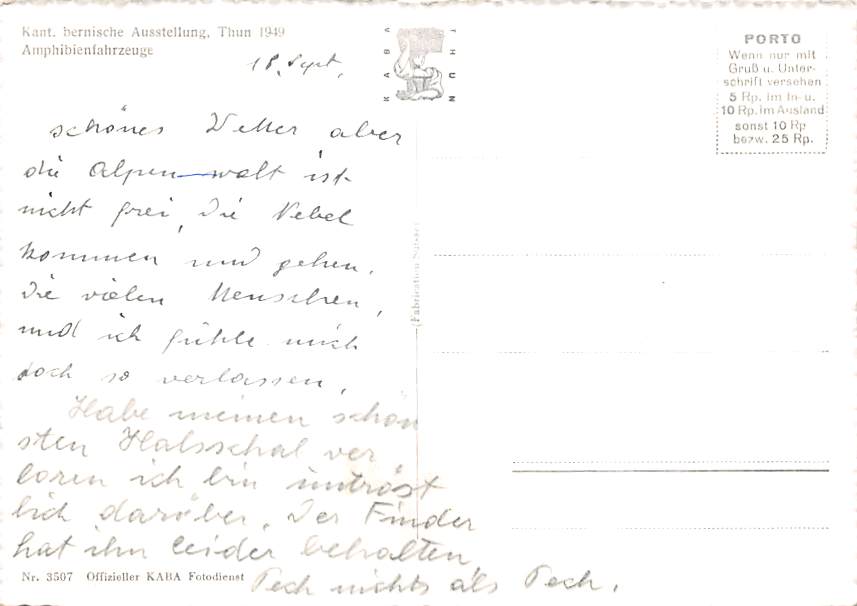 Kant. bernische Ausstellung, Thun 1949
Amphibienfahrzeuge
18. Sept.
KABA THUN
PORTO
Wenn nur mit
Gruß u. Unter-
schrift versehen
5 Rp. im In- u.
10 Rp. im Ausland
sonst 10 Rp
bezw. 25 Rp.
schönes Wetter aber
die Alpenwelt ist
nicht frei, die Nebel
kommen und gehen.
die vielen Menschen,
und ich fühle mich
doch so verlassen.
Habe meinen schön
sten Halsschal ver
loren ich bin untröst
lich darüber. Der Finder
hat ihn leider behalten
Pech nichts als Pech.
(Fabrication Suisse)
Nr. 3507 Offizieller KABA Fotodienst